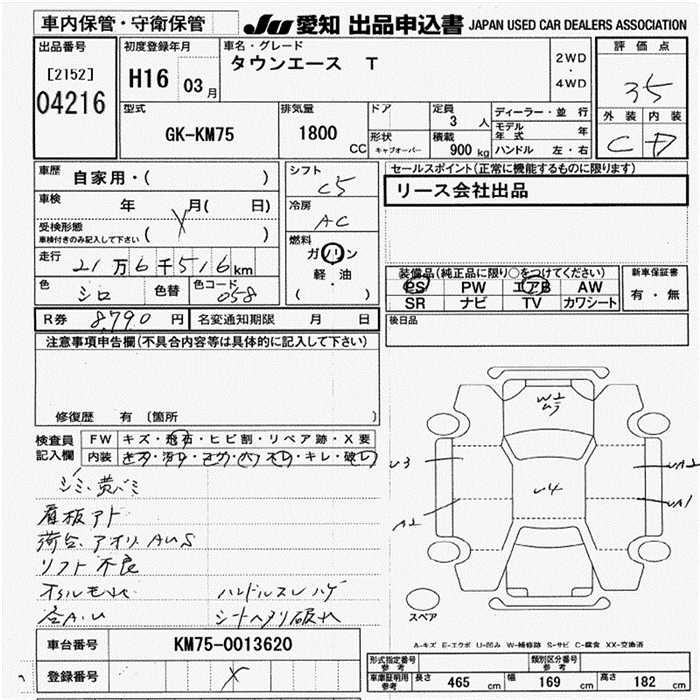 車内保管・守衛保管
JU 愛知 出品申込書 JAPAN USED CAR DEALERS ASSOCIATION
出品番号
[2152]
04216
初度登録年月
H16 03月
車名・グレード
タウンエース T
2WD
・
4WD
評価点
3.5
外装 内装
C D
型式
GK-KM75
排気量
1800 CC
ドア
形状
キャブオーバー
定員
3 人
積載
900 kg
ディーラー・並行
モデル年式 年
ハンドル 左・右
車歴
自家用・( )
車検
年 月( 日)
受検形態
車検付きのみ記入して下さい ( )
走行
21万6千516km
色
シロ 色替
色コード
058
シフト
C5
冷房
AC
燃料
ガソリン
軽・油
( )
セールスポイント(正常に機能するものに限ります)
リース会社出品
装備品(純正品に限り○をつけてください)
PS PW エアB AW
SR ナビ TV カワシート
新車保証書
有・無
後日品
R券 8,790 円 名変通知期限 月 日
注意事項申告欄(不具合内容等は具体的に記入して下さい)
修復歴 有 〔箇所 〕
検査員
記入欄
FW キズ・飛石・ヒビ割・リペア跡・X要
内装 キズ・汚レ・コゲ・穴・スレ・キレ・破レ
シミ、黄バミ
看板アト
荷台、アオリAUS
リフト不良
オイルモレ
ハンドルスレハゲ
各A.U
シートヘタリ破れ
W2
U3
U3
U4
A2
UA2
UA1
スペア
A-キズ E-エクボ U-凹み W-補修跡 S-サビ C-腐食 XX-交換済
車台番号 KM75-0013620
登録番号
形式指定番号
参考
類別区分番号
参考
車庫証明用
参考
長さ 465 cm 幅 169 cm 高さ 182 cm